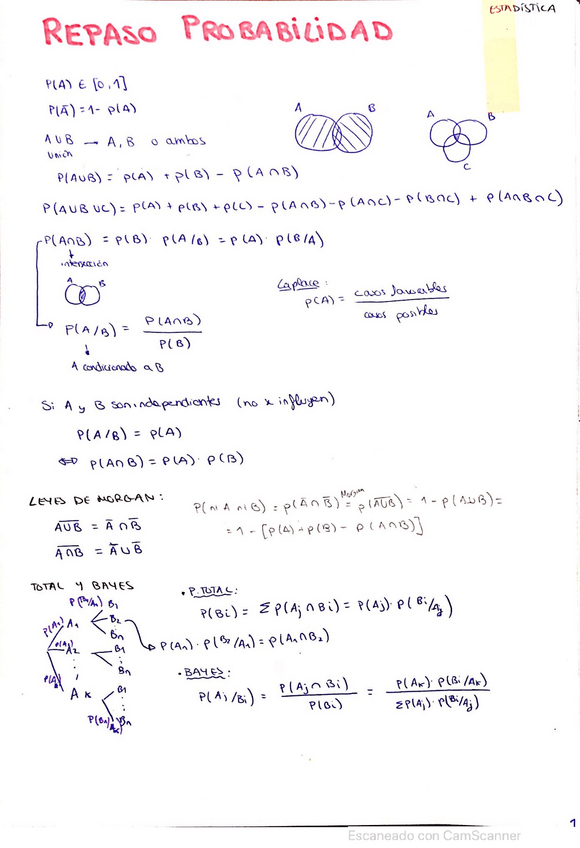 ESTADÍSTICA
REPASO PROBABILIDAD
P(A) ∈ [0,1]
P(Ā) = 1 - P(A)
A∪B → A, B o ambos
unión
A B
A B
C
P(A∪B) = P(A) + P(B) - P(A∩B)
P(A∪B∪C) = P(A) + P(B) + P(C) - P(A∩B) - P(A∩C) - P(B∩C) + P(A∩B∩C)
P(A∩B) = P(B) · P(A/B) = P(A) · P(B/A)
intersección
A B
Laplace:
P(A) = casos favorables / casos posibles
P(A/B) = P(A∩B) / P(B)
A condicionado a B
Si A y B son independientes (no x influyen)
P(A/B) = P(A)
⇔ P(A∩B) = P(A) · P(B)
LEYES DE MORGAN:
P(ni A ni B) = P(Ā∩B̅) = Morgan P(A̅∪̅B̅) = 1 - P(A∪B) =
= 1 - [P(A) + P(B) - P(A∩B)]
A̅∪̅B̅ = Ā∩B̅
A̅∩̅B̅ = Ā∪B̅
TOTAL Y BAYES
P(B1/A1) B1
P(A1) A1 B2
Bn
P(A2) A2 B1
Bn
P(Ak) A k B1
P(Bn/Ak) Bn
P(A1) · P(B2/A1) = P(A1∩B2)
• P. TOTAL:
P(Bi) = ΣP(Aj∩Bi) = P(Aj) · P(Bi/Aj)
• BAYES:
P(Aj/Bi) = P(Aj∩Bi) / P(Bi) = P(Ak) · P(Bi/Ak) / ΣP(Aj) · P(Bi/Aj)
1
Escaneado con CamScanner